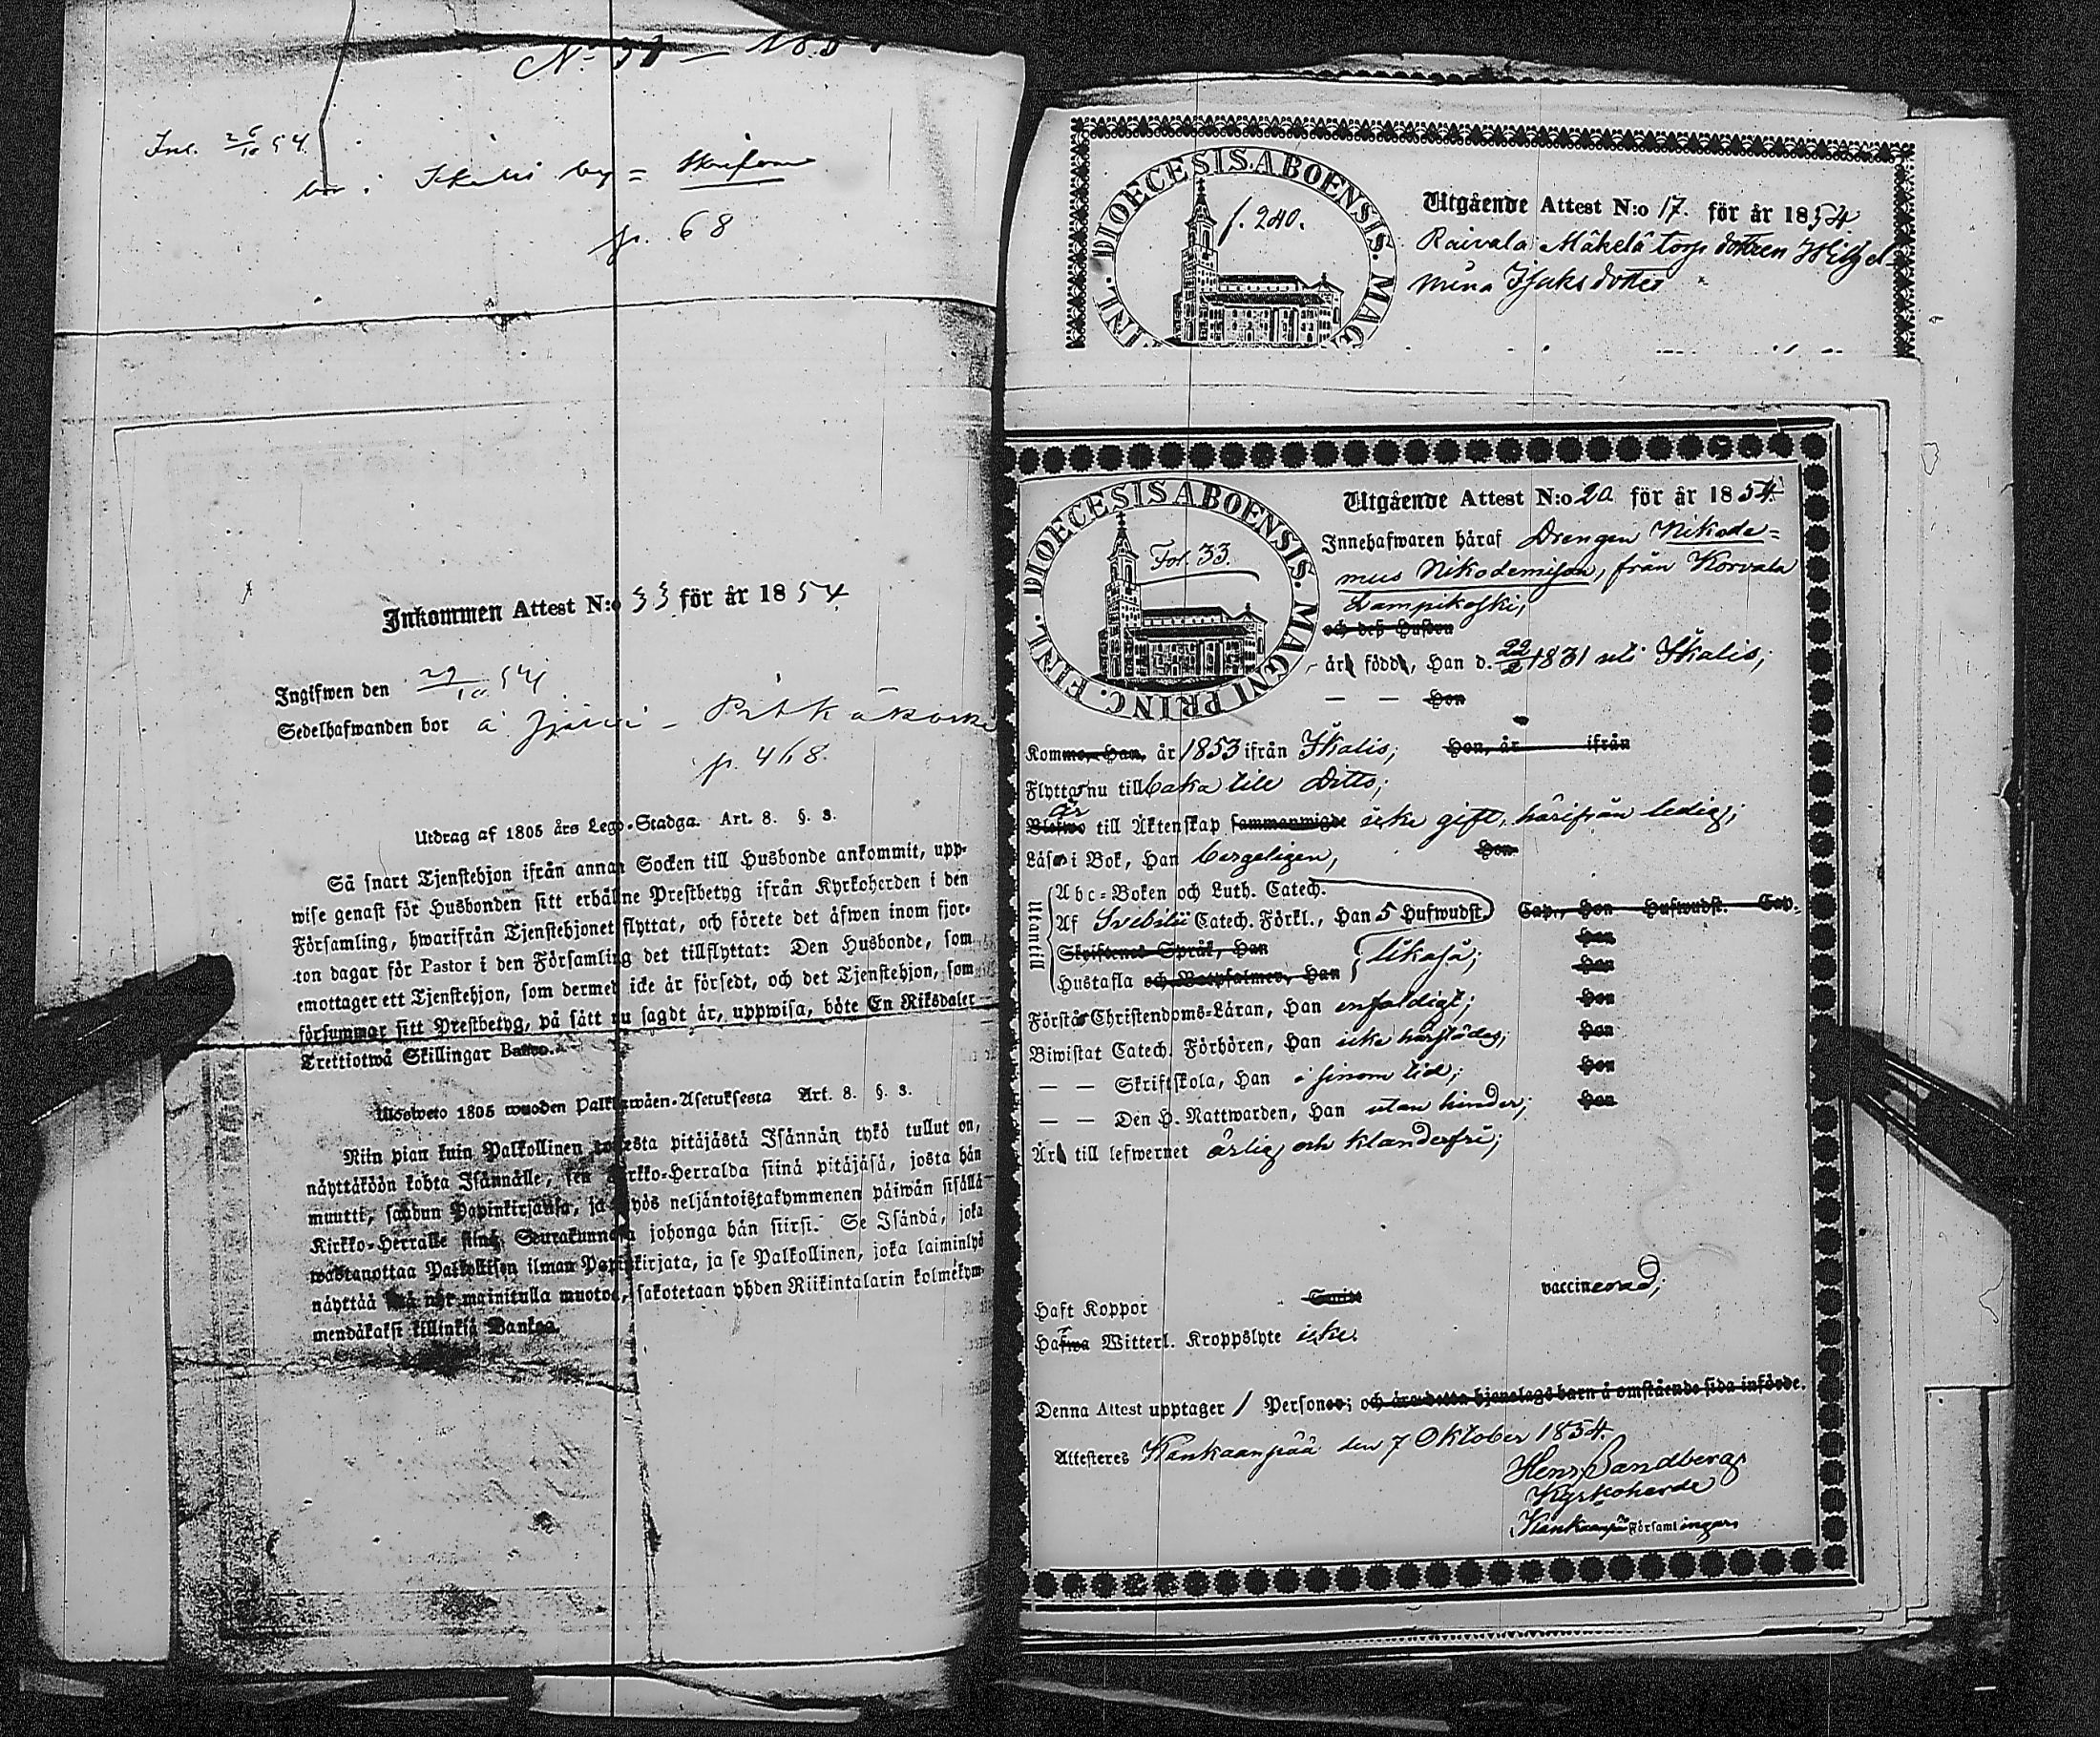 Inl. 26/10 54.
bor i Ikalis by =
p. 68
Inkommen Attest N:o 33 för år 1854.
Ingifwen den 29/10 54
Sedelhafwanden bor å Jylli -
p. 468.
Utdrag af 1805 års Lego-Stadga. Art. 8. §. 3.
Så snart Tjenstehjon ifrån annan Socken till Husbonde ankommit, upp-
wise genast för Husbonden sitt erhållne Prestbetyg ifrån Kyrkoherden i den
Församling, hwarifrån Tjenstehjonet flyttat, och förete det äfwen inom fjor-
ton dagar för Pastor i den Församling det tillflyttat: Den Husbonde, som
emottager ett Tjenstehjon, som dermed icke är försedt, och det Tjenstehjon, som
försummar sitt Prestbetyg, på sätt nu sagdt är, uppwisa, böte En Riksdaler
Trettiotwå Skillingar Banco.
Ulosweto 1805 wuoden Palkkawäen-Asetuksesta Art. 8. §. 3.
Niin pian kuin Palkollinen toisesta pitäjästä Isännän tykö tullut on,
näyttäköön kohta Isännälle, sen Kirkko-Herralda siinä pitäjäsä, josta hän
muutti, saadun Papinkirjansa, ja myös neljäntoistakymmenen päiwän sisällä
Kirkko-Herralle siinä Seurakunnasa johonga hän siirsi. Se Isändä, joka
wastanottaa Palkollisen ilman Papinkirjata, ja se Palkollinen, joka laiminlyö
näyttää sitä nyt mainitulla muotoa, sakotetaan yhden Riikintalarin kolmekym-
mendäkaksi killinkiä Bankoa.
DIOECESIS ABOENSIS. MAG
FINL.
f. 240.
Utgående Attest N:o 17. för år 1854
Raivala Mäkelä torp dottren Wilhel-
mina Isaksdotter
DIOECESIS ABOENSIS. MAGNI PRINC. FINL.
Fol. 33.
Utgående Attest N:o 20 för år 1854.
Innehafwaren häraf Drengen Nikode=
mus Nikodemisson, från Korvala
Lampikoski,
och deß Hustru
är född, Han d. 22/2 1831 uti Ikalis;
— — Hon
Kommo, Han, år 1853 ifrån Ikalis; Hon, år ifrån
Flyttar nu tillbaka till Ditto;
är
Blefwo till Äktenskap sammanwigde icke gift, härifrån ledig;
Läser i Bok, Han bergeligen, Hon
Utantill
Abc-Boken och Luth. Catech.
Af Svebilii Catech. Förkl., Han 5 Hufwudst. Cap., Hon Hufwudst. Cap.
Skriftenes Språk, Han likaså; Hon
Hustafla och Botpsalmer, Han Hon
Förstår Christendoms-Läran, Han enfaldigt; Hon
Biwistat Catech. Förhören, Han icke härstädes; Hon
— — Skriftskola, Han i sinom tid; Hon
— — Den H. Nattwarden, Han utan hinder; Hon
Är till lefwernet ärlig och klanderfri;
Haft Koppor vaccinerad;
Hafwa Witterl. Kroppslyte icke.
Denna Attest upptager 1 Personer; och äro detta hjonelags barn å omstående sida införde.
Attesteres Kankaanpää den 7 Oktober 1854.
Henr Sandberg
Kyrkoherde
i Kankaanpää Församlingar,